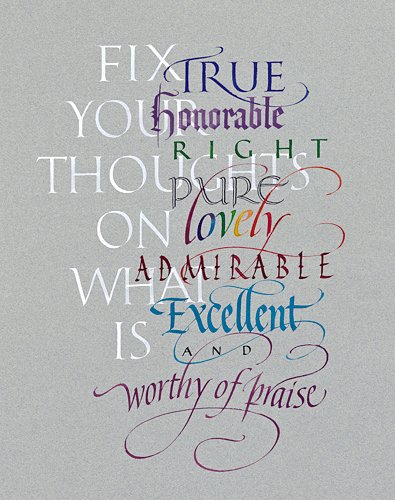 FIX
YOUR
THOUGHTS
ON
WHAT
IS
TRUE
Honorable
RIGHT
PURE
lovely
ADMIRABLE
Excellent
AND
worthy of praise